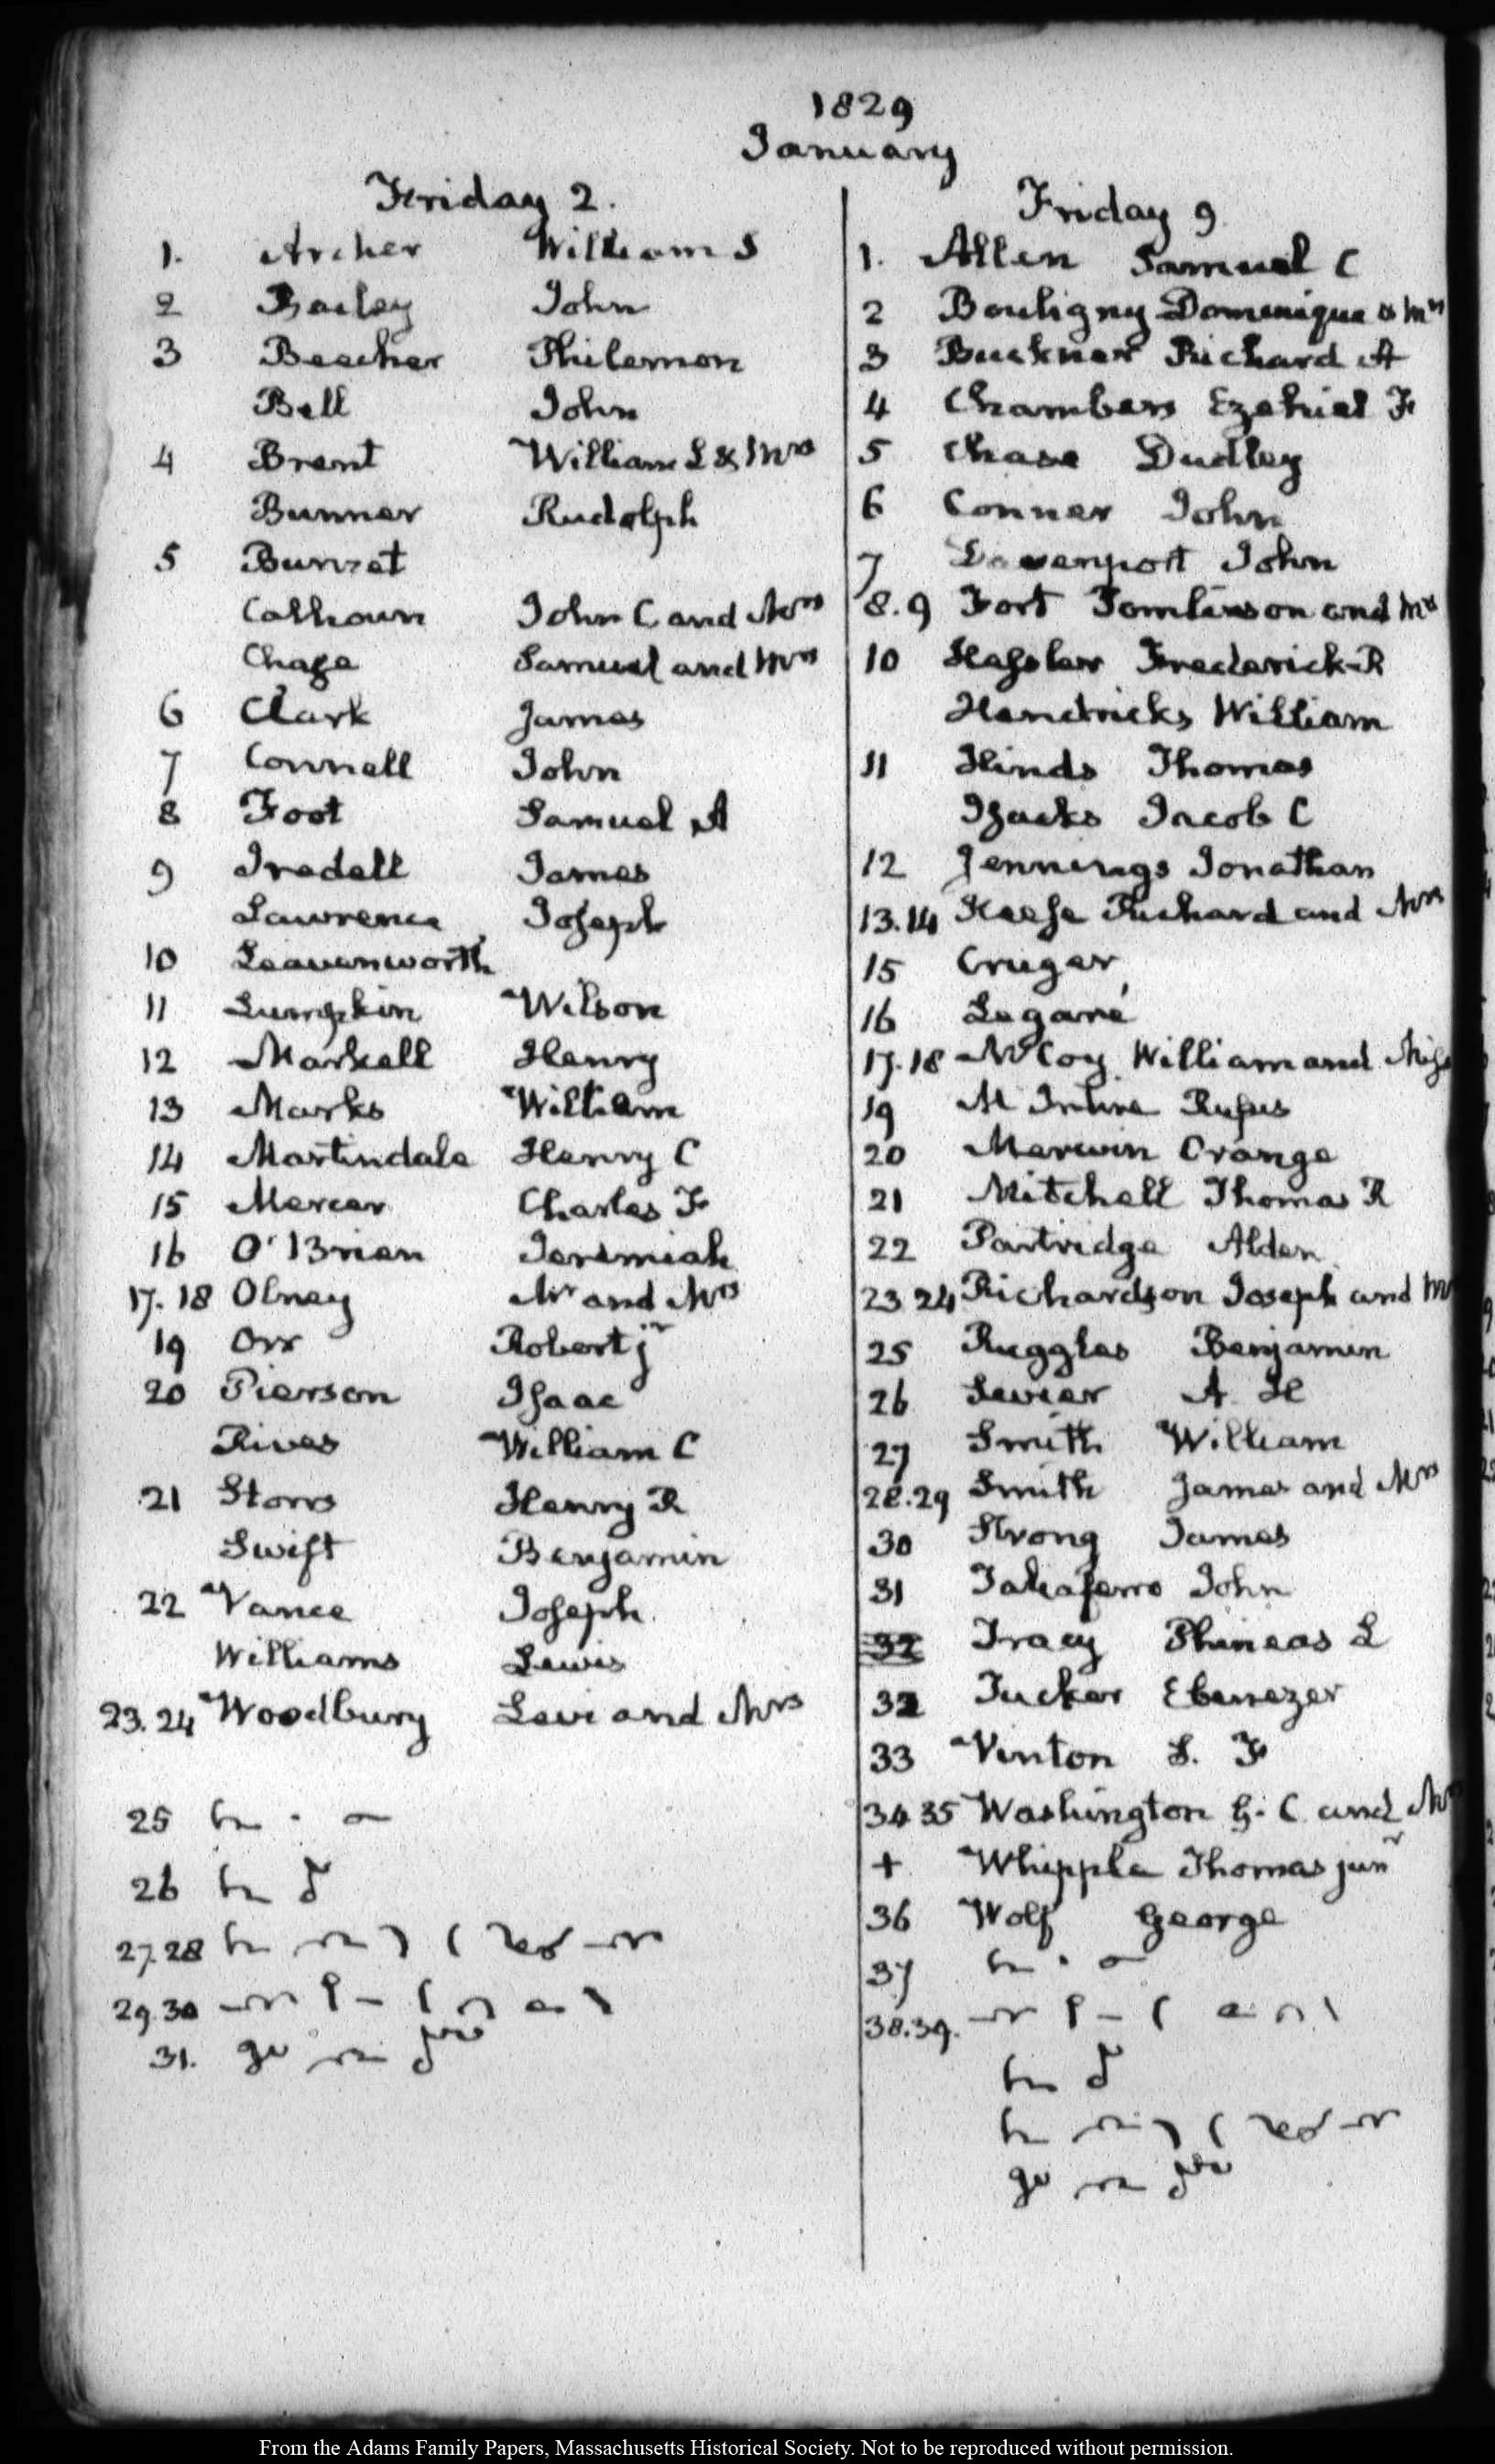 1829
January
Friday 2.
1. Archer William S
2 Bailey John
3 Beecher Philemon
Bell John
4 Brent William L & Mrs
Bunner Rudolph
5 Burnet
Calhoun John C and Mrs
Chase Samuel and Mrs
6 Clark James
7 Connell John
8 Foot Samuel A
9 Iredell James
Lawrence Joseph
10 Leavenworth
11 Lumpkin Wilson
12 Markell Henry
13 Marks William
14 Martindale Henry C
15 Mercer Charles F
16 O'Brien Jeremiah
17.18 Olney Mr and Mrs
19 Orr Robert jr
20 Pierson Isaac
Rives William C
21 Storrs Henry R
Swift Benjamin
22 Vance Joseph
Williams Lewis
23.24 Woodbury Levi and Mrs
25
26
27.28
29.30
31.
Friday 9
1. Allen Samuel C
2 Bouligny Dominique & Mrs
3 Buckner Richard A
4 Chambers Ezekiel F
5 Chase Dudley
6 Conner John
7 Davenport John
8.9 Fort Tomlinson and Mrs
10 Hassler Frederick R
Hendricks William
11 Hinds Thomas
Isacks Jacob C
12 Jennings Jonathan
13.14 Keese Richard and Mrs
15 Cruger
16 Legaré
17.18 McCoy William and Miss
19 McIntire Rufus
20 Merwin Orange
21 Mitchell Thomas R
22 Partridge Alden
23 24 Richardson Joseph and
25 Ruggles Benjamin
26 Sevier A. H
27 Smith William
28.29 Smith James and Mrs
30 Strong James
31 Taliaferro John
32 Tracy Phineas L
32 Tucker Ebenezer
33 Vinton S. F
34 35 Washington G. C and Mrs
+ Whipple Thomas junr
36 Wolf George
37
38.39.
From the Adams Family Papers, Massachusetts Historical Society. Not to be reproduced without permission.